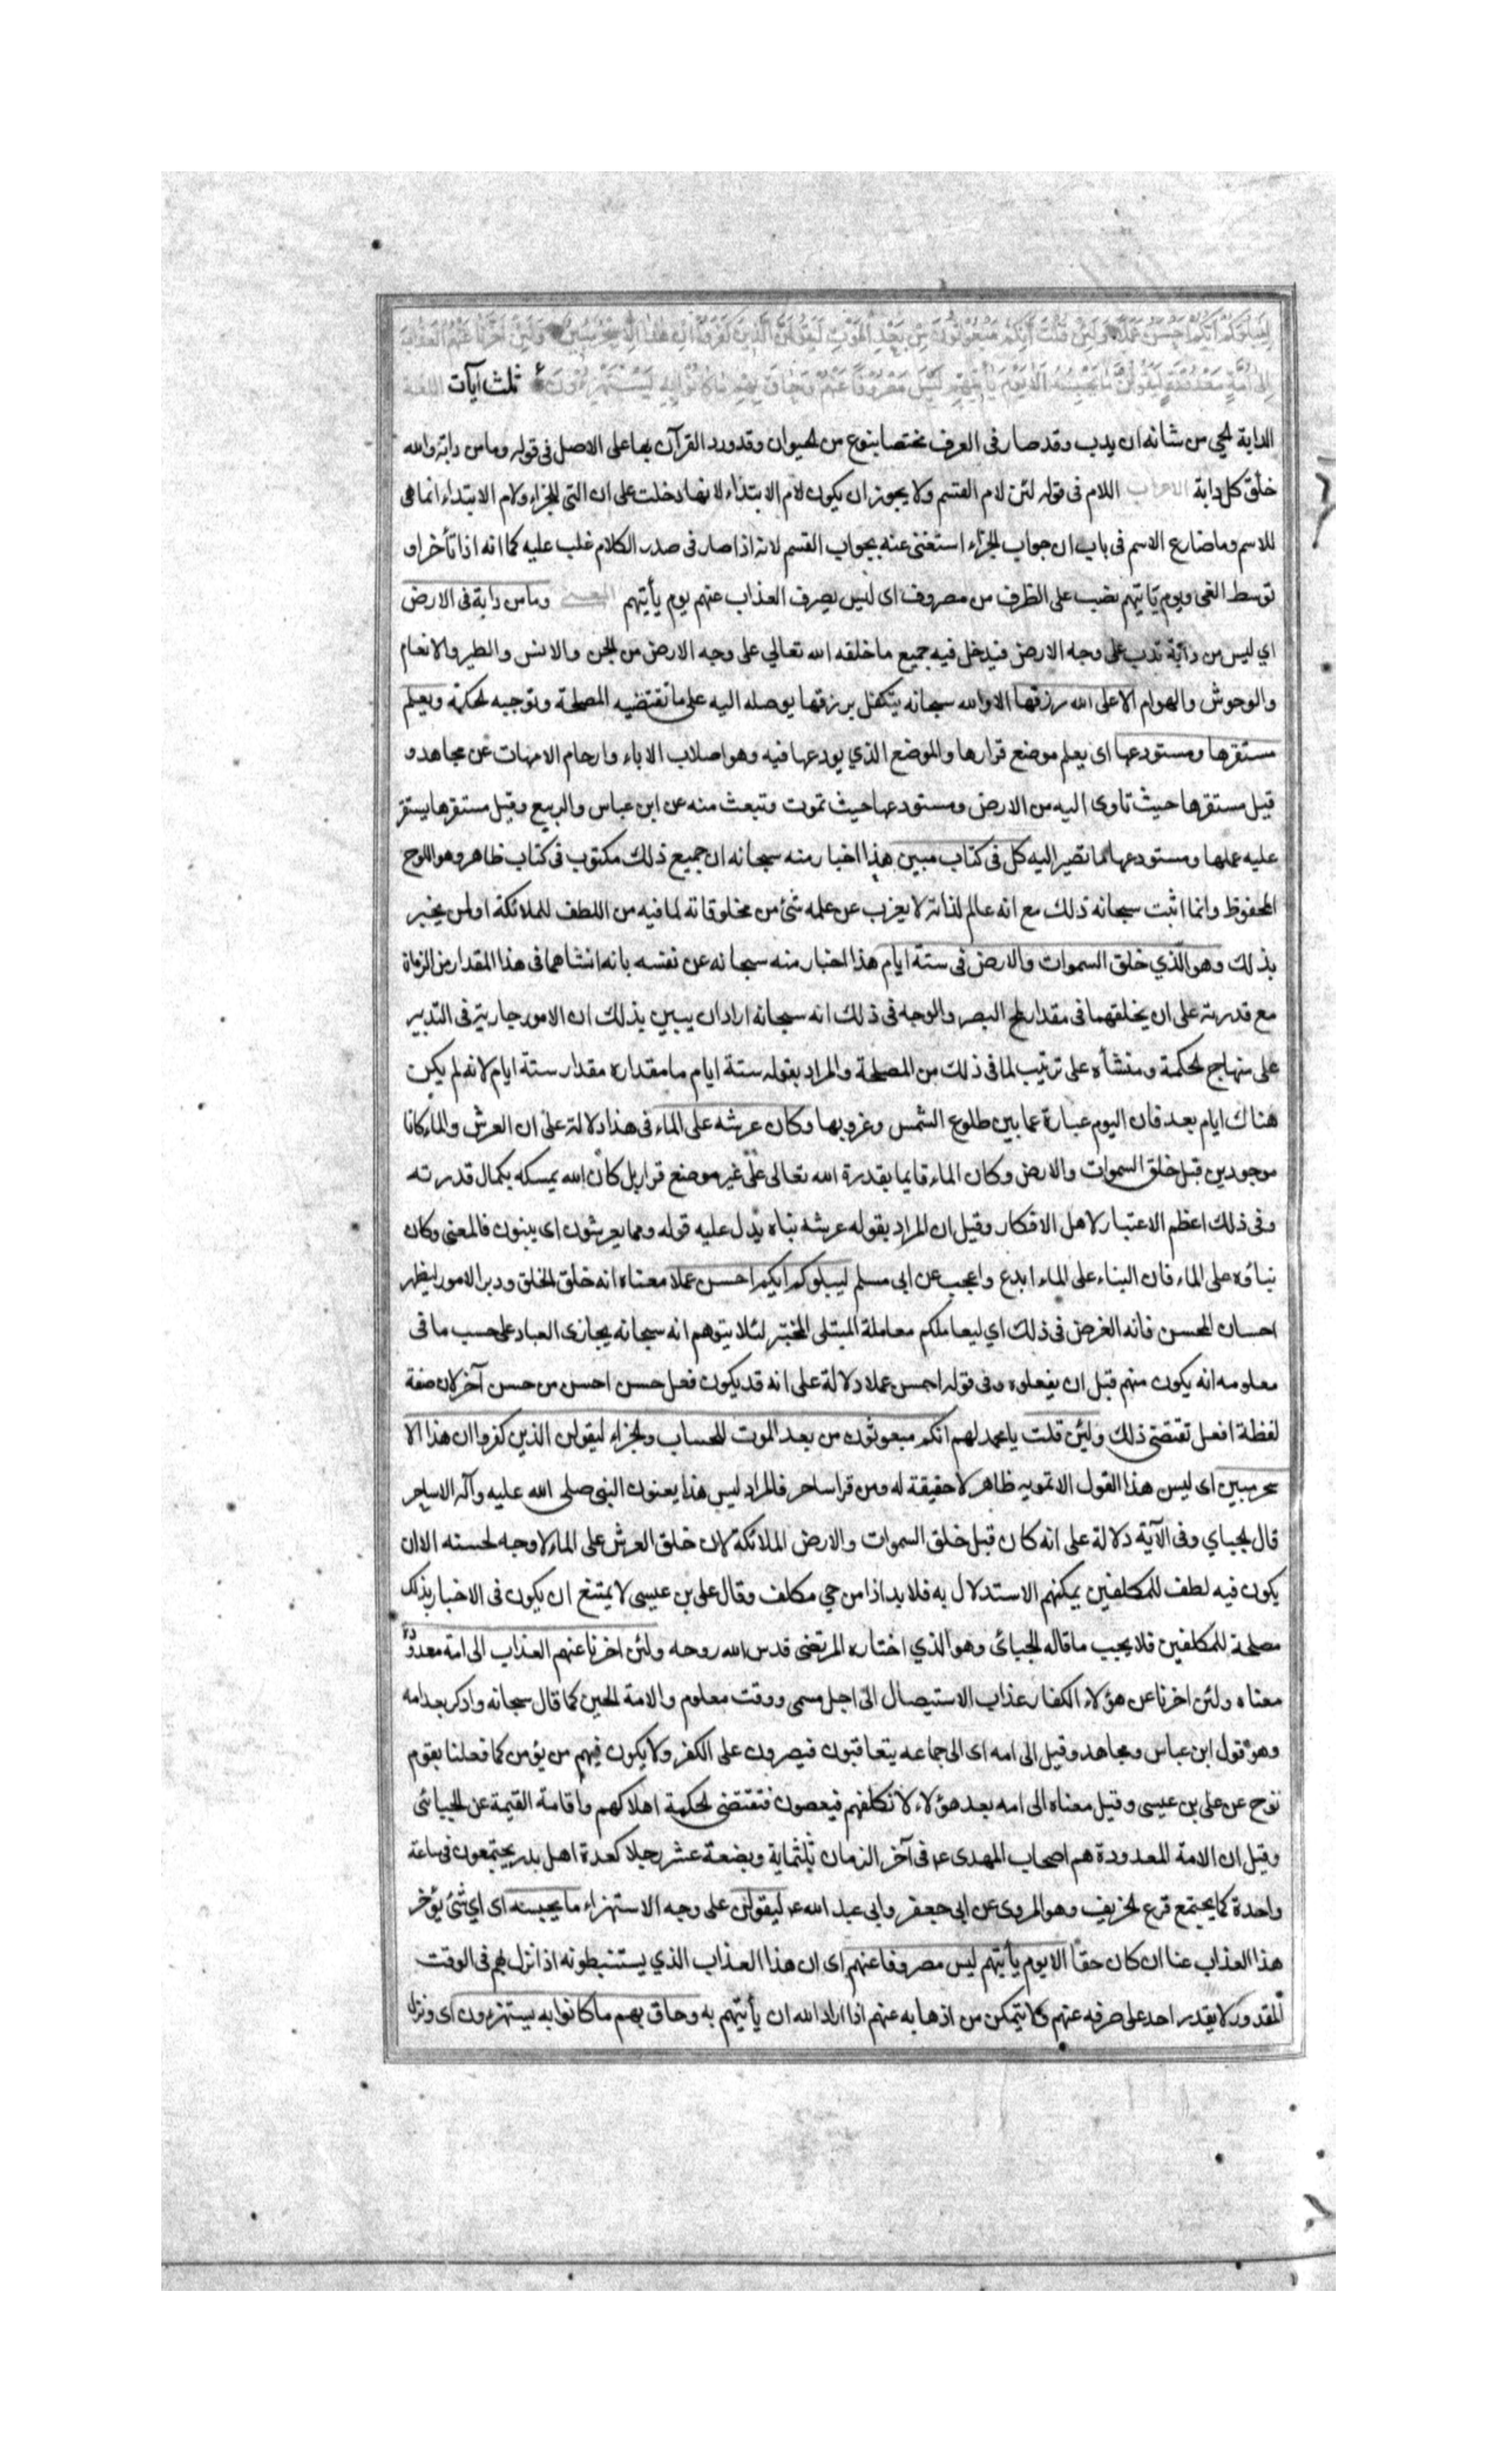 ليبلوكم ايكم احسن عملا ولئن قلت انكم مبعوثون من بعد الموت ليقولن الذين كفروا ان هذا الا سحر مبين ولئن اخرنا عنهم العذاب
الى امة معدودة ليقولن ما يحبسه الا يوم يأتيهم ليس مصروفا عنهم وحاق بهم ما كانوا به يستهزؤن ثلث آيات اللغة
الدابة الحي من شانه ان يدب وقد صار فى العرف مختصا بنوع من الحيوان وقد ورد القرآن بها على الاصل فى قوله وما من دابة والله
خلق كل دابة الاعراب اللام فى قوله لئن لام القسم ولا يجوز ان يكون لام الابتداء لانها دخلت على ان التى للجزاء ولام الابتداء انما هى
للاسم وما ضارع الاسم فى باب ان جواب الجزاء استغنى عنه بجواب القسم لانه اذا صار فى صدر الكلام غلب عليه كما انه اذا تأخر او
توسط الغى ويوم يأتيهم نصب على الظرف من مصروف اى ليس يصرف العذاب عنهم يوم يأتيهم المعنى وما من دابة فى الارض
اي ليس من دابة تدب على وجه الارض فيدخل فيه جميع ما خلقه الله تعالي على وجه الارض من الجن والانس والطير والانعام
والوحوش والهوام الا على الله رزقها الا والله سبحانه يتكفل برزقها يوصله اليه على ما تقتضيه المصلحة وتوجبه الحكمة ويعلم
مستقرها ومستودعها اى يعلم موضع قرارها والموضع الذي يودعها فيه وهو اصلاب الاباء وارحام الامهات عن مجاهد و
قيل مستقرها حيث تاوى اليه من الارض ومستودعها حيث تموت وتبعث منه عن ابن عباس والربيع وقيل مستقرها يستقر
عليه عملها ومستودعها ما تصير اليه كل فى كتاب مبين هذا اخبار منه سبحانه ان جميع ذلك مكتوب فى كتاب ظاهر وهو اللوح
المحفوظ وانما اثبت سبحانه ذلك مع انه عالم لذاته لا يعزب عن علمه شئ من مخلوقاته لما فيه من اللطف للملائكة او لمن يخبر
بذلك وهو الذي خلق السموات والارض فى ستة ايام هذا اخبار منه سبحانه عن نفسه بانه انشاهما فى هذا المقدار من الزمان
مع قدرته على ان يخلقهما فى مقدار لمح البصر والوجه فى ذلك انه سبحانه اراد ان يبين بذلك ان الامور جارية فى التدبير
على منهاج الحكمة ومنشأه على ترتيب لما فى ذلك من المصلحة والمراد بقوله ستة ايام ما مقداره مقدار ستة ايام لانه لم يكن
هناك ايام بعد فان اليوم عبارة عما بين طلوع الشمس وغروبها وكان عرشه على الماء فى هذا دلالة على ان العرش والماء كانا
موجودين قبل خلق السموات والارض وكان الماء قايما بقدرة الله تعالى على غير موضع قرار بل كان الله يمسكه بكمال قدرته
وفى ذلك اعظم الاعتبار لاهل الافكار وقيل ان المراد بقوله عرشه بناه يدل عليه قوله ومما يعرشون اى يبنون فالمعنى وكان
بناؤه على الماء فان البناء على الماء ابدع واعجب عن ابى مسلم ليبلوكم ايكم احسن عملا معناه انه خلق الخلق ودبر الامور ليظهر
احسان المحسن فانه الغرض فى ذلك اي ليعاملكم معاملة المبتلى المختبر لئلا يتوهم انه سبحانه يجازى العباد على حسب ما فى
معلومه انه يكون منهم قبل ان يفعلوه وفى قوله احسن عملا دلالة على انه قد يكون فعل حسن احسن من حسن آخر لان صفة
لفظة افعل تقتضى ذلك ولئن قلت يا محمد لهم انكم مبعوثون من بعد الموت للحساب والجزاء ليقولن الذين كفروا ان هذا الا
سحر مبين اى ليس هذا القول الا تمويه ظاهر لا حقيقة له ومن قرا ساحر فالمراد ليس هذا يعنون النبى صلى الله عليه وآله الا ساحر
قال الجباي وفى الآية دلالة على انه كان قبل خلق السموات والارض الملائكة لان خلق العرش على الماء لا وجه لحسنه الا ان
يكون فيه لطف للمكلفين يمكنهم الاستدلال به فلا بد اذا من حي مكلف وقال على بن عيسى لا يمتنع ان يكون فى الاخبار بذلك
مصلحة للمكلفين فلا يجب ما قاله الجبائى وهو الذي اختاره المرتضى قدس الله روحه ولئن اخرنا عنهم العذاب الى امة معدودة
معناه ولئن اخرنا عن هؤلاء الكفار عذاب الاستيصال الى اجل مسمى ووقت معلوم والامة الحين كما قال سبحانه وادكر بعد امه
وهو قول ابن عباس ومجاهد وقيل الى امه اى الى جماعه يتعاقبون فيصرون على الكفر ولا يكون فيهم من يؤمن كما فعلنا بقوم
نوح عن على بن عيسى وقيل معناه الى امه بعد هؤلاء لا نكلفهم فيعصون فتقتضى الحكمة اهلاكهم واقامة القيمة عن الجبائى
وقيل ان الامة المعدودة هم اصحاب المهدى ع فى آخر الزمان ثلثماية وبضعة عشر رجلا كعدة اهل بدر يجتمعون فى ساعة
واحدة كما يجتمع قزع الخريف وهو المروى عن ابى جعفر وابى عبد الله ع ليقولن على وجه الاستهزاء ما يحبسه اى اي شئ يؤخر
هذا العذاب عنا ان كان حقا الا يوم يأتيهم ليس مصروفا عنهم اى ان هذا العذاب الذي يستنبطونه اذا نزل بهم فى الوقت
المقدور لا يقدر احد على صرفه عنهم ولا يتمكن من اذهابه عنهم اذا اراد الله ان يأتيهم به وحاق بهم ما كانوا به يستهزؤن اى ونزل